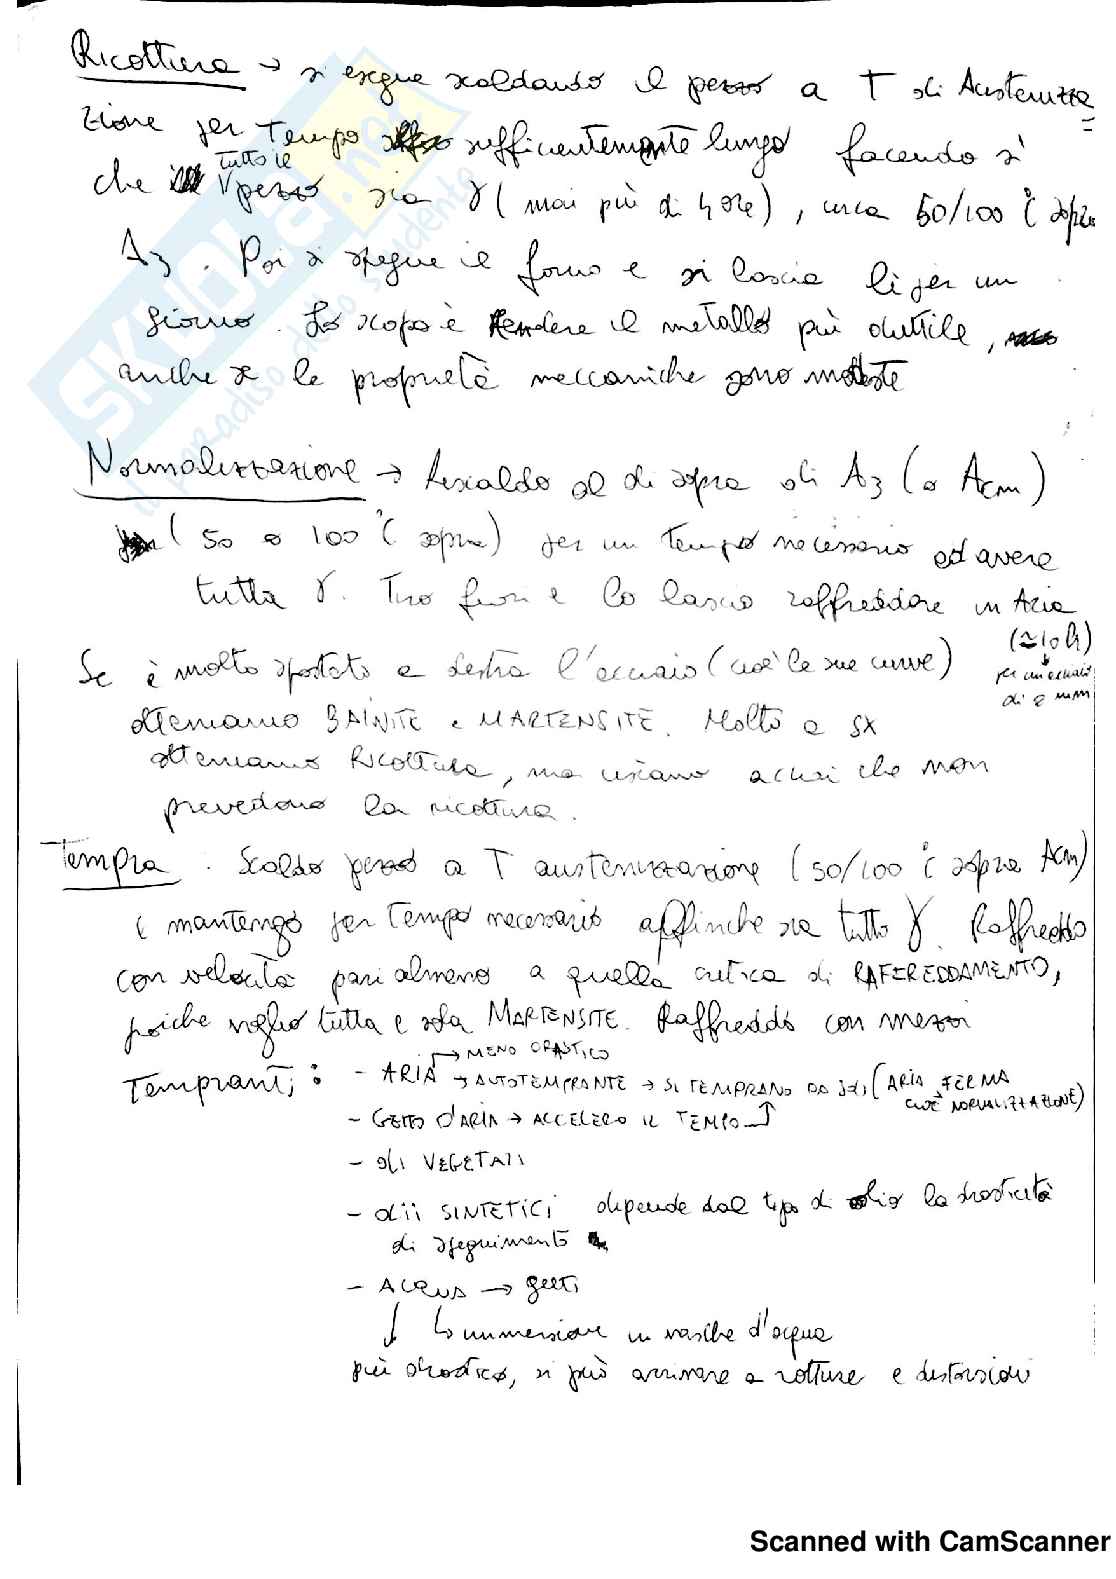 Ricottura → si esegue scaldando il pezzo a T di Austenizza
zione per tempo sufficientemente lungo facendo sì
che tutto il pezzo sia γ (mai più di 4 ore), circa 50/100 °C sopra
A3. Poi si spegne il forno e si lascia lì per un
giorno. Lo scopo è rendere il metallo più duttile,
anche se le proprietà meccaniche sono modeste
Normalizzazione → Riscaldo al di sopra di A3 (o Acm)
(50 o 100 °C sopra) per un tempo necessario ad avere
tutta γ. Tiro fuori e lo lascio raffreddare in Aria
(≃10 h)
per un acciaio
di 2 mm
Se è molto spostato a destra l'acciaio (cioè le sue curve)
otteniamo BAINITE e MARTENSITE. Molto a SX
otteniamo Ricottura, ma usiamo acciai che non
prevedono la ricottura.
Tempra: Scaldo pezzo a T austenizzazione (50/100 °C sopra Acm)
e mantengo per tempo necessario affinche sia tutto γ. Raffreddo
con velocità pari almeno a quella critica di RAFFREDDAMENTO,
poiche voglio tutta e sola MARTENSITE. Raffreddo con mezzi
Tempranti:
- ARIA → MENO DRASTICO
→ AUTOTEMPRANTE → SI TEMPRANO DA SOLI (ARIA FERMA
CIOÈ NORMALIZZAZIONE)
- GETTO D'ARIA → ACCELERO IL TEMPO
- oli VEGETALI
- olii SINTETICI dipende dal tipo di olio la drasticità
di spegnimento
- ACQUA → getti
↳ immersione in vasche d'acqua
più drastico, si può arrivare a rotture e distorsioni
Scanned with CamScanner
SKUOLA.net
il paradiso dello studente